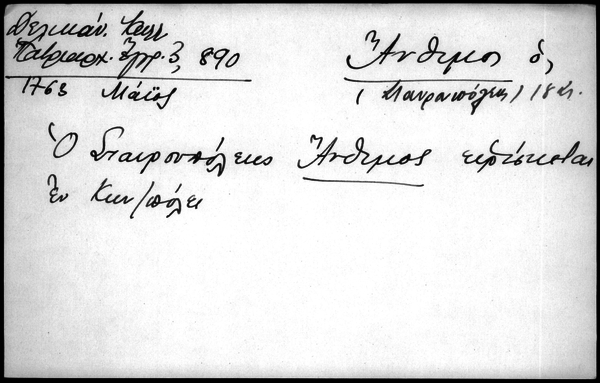 Δελικάν. Καλλ
Πατριαρχ. Ἔγγρ. 3, 890
1763 Μάϊος
Ἄνθιμος ὁ,
(Σταυρουπόλεως) 18 αἰ.
Ὁ Σταυρουπόλεως Ἄνθιμος εὑρίσκεται
ἐν Κων/πόλει